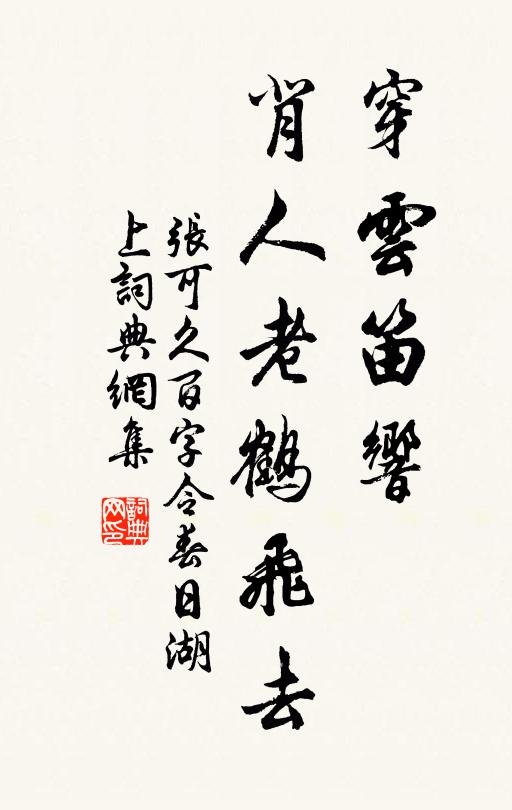 穿雲笛響
背人老鶴飛去
張可久百字令春日湖
上詞典網集
詞典
网印